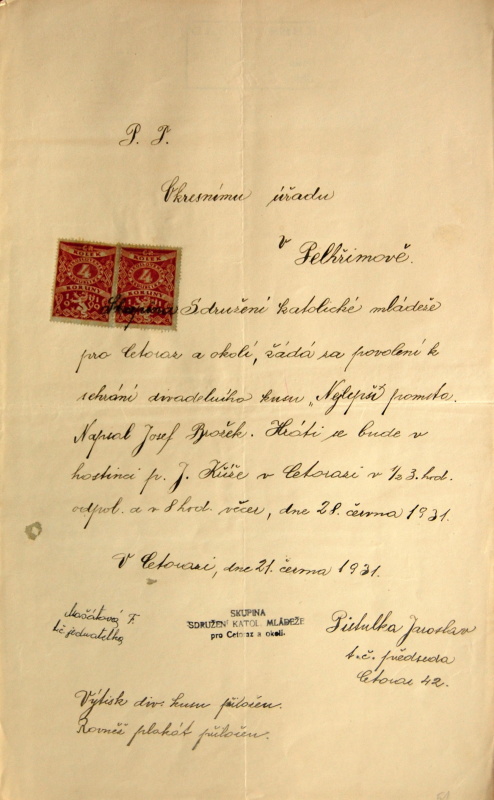 P. T.
Okresnímu úřadu
v
Pelhřimově.
KOLEK
4
KORUNY
KOLEK
4
KORUNY
Skupina Sdružení katolické mládeže
pro Cetoraz a okolí, žádá za povolení k
sehrání divadelního kusu „Nejlepší pomsta.
Napsal Josef Brožek. Hráti se bude v
hostinci p. J. Kříže v Cetorazi v 1/2 3. hod.
odpol. a v 8 hod. večer, dne 28. června 1931.
V Cetorazi, dne 21. června 1931.
Mašátová F.
t. č. jednatelka
SKUPINA
SDRUŽENÍ KATOL. MLÁDEŽE
pro Cetoraz a okolí.
Pistulka Jaroslav
t. č. předseda
Cetoraz 42.
Výtisk div. kusu přiložen.
Rovněž plakát přiložen.